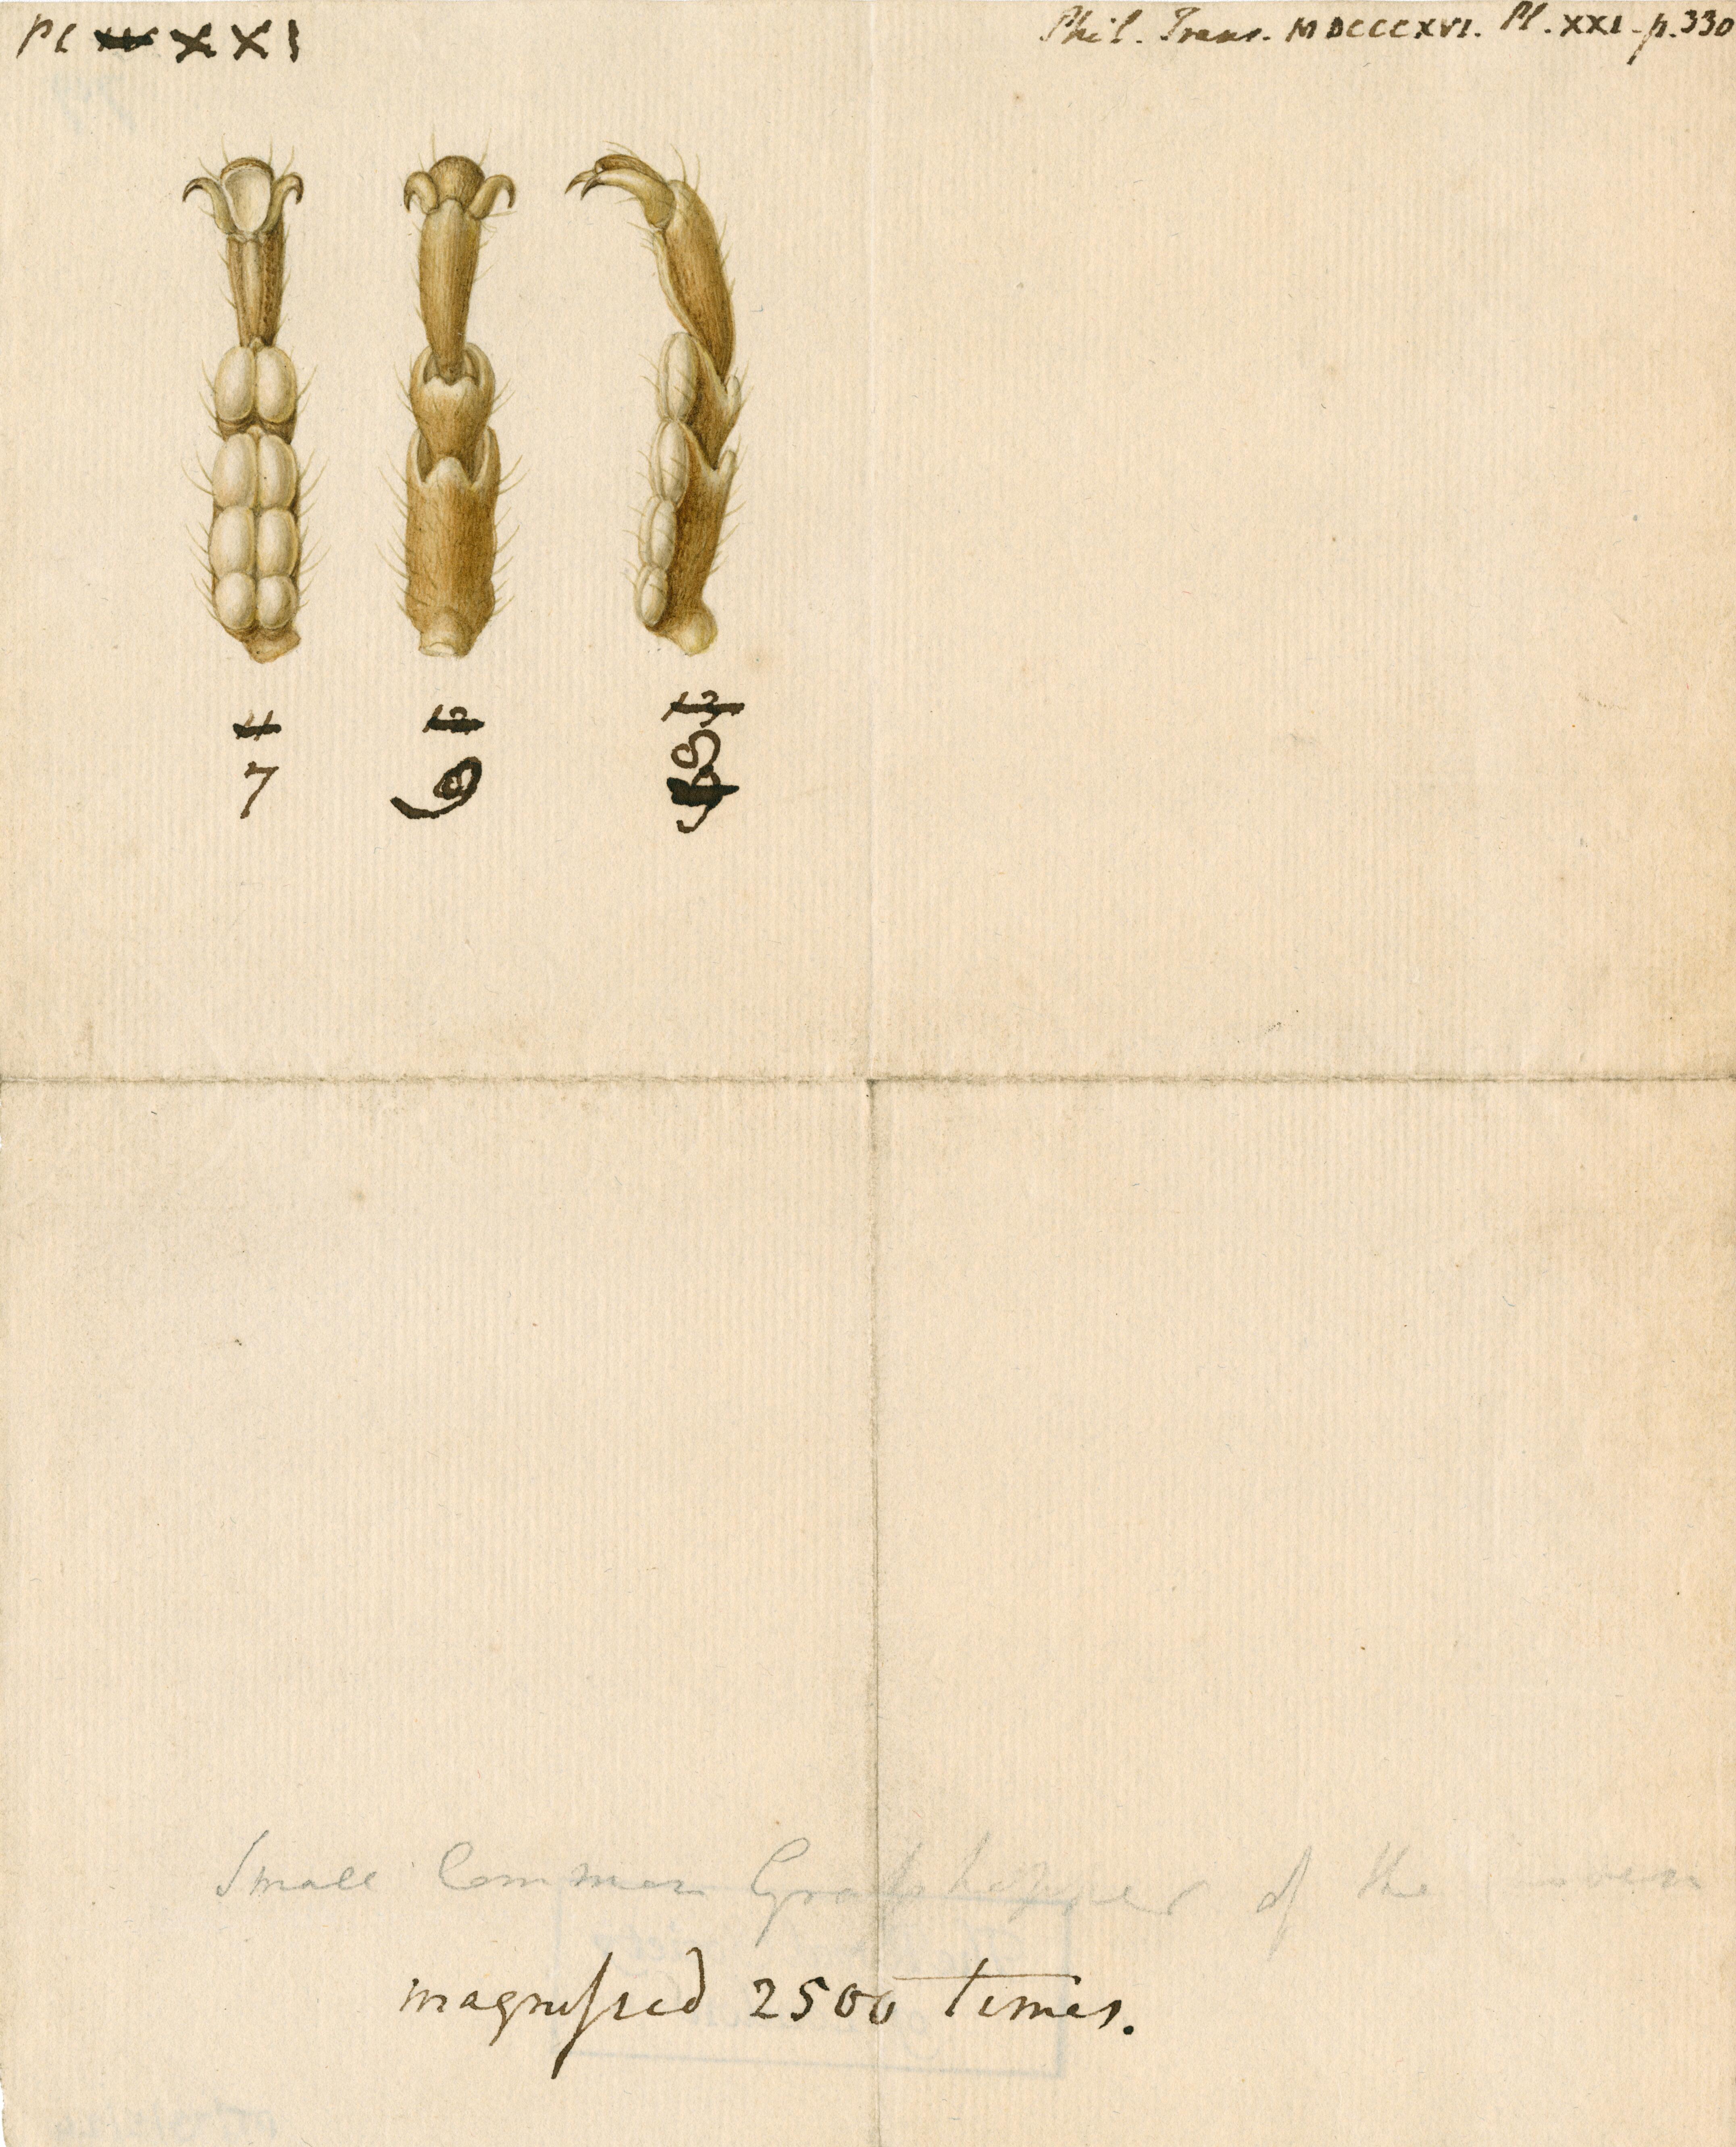 Pl XXI
Phil. Trans. MDCCCXVI. Pl. XXI - p. 330
11 12 13
7 9 8
Small Common Grasshopper of the
magnified 2500 times.